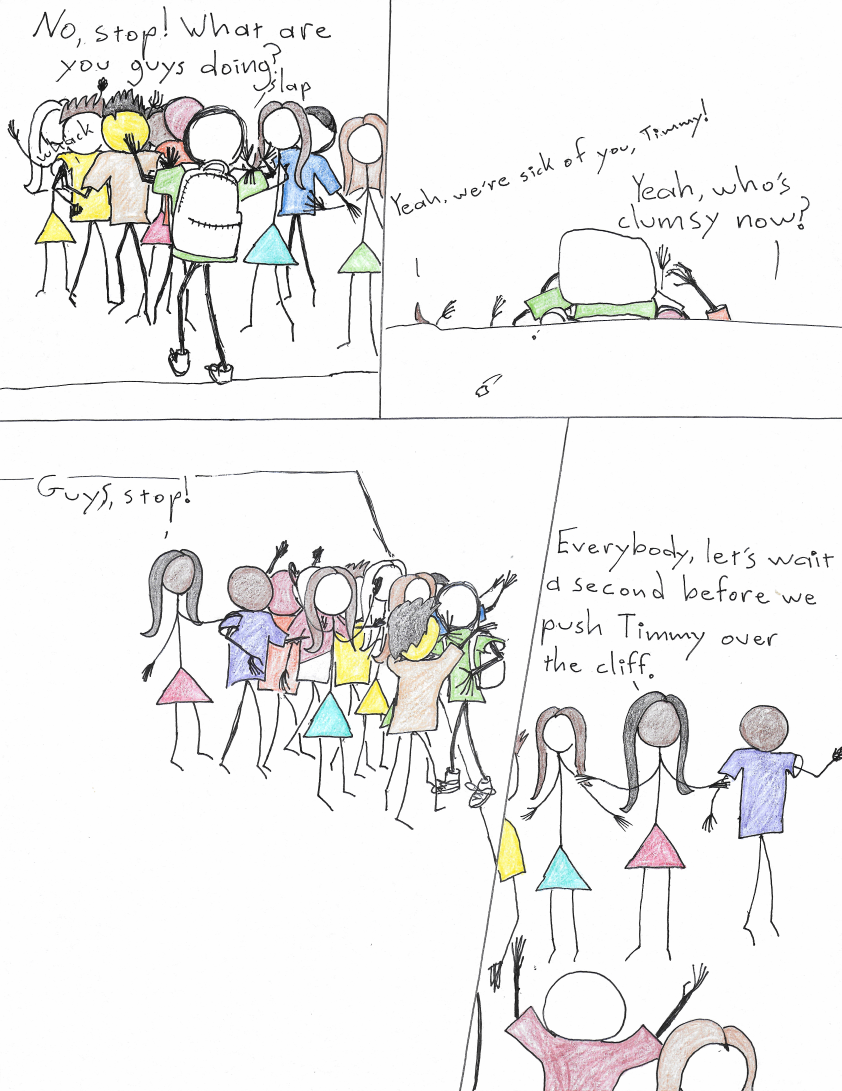 No, stop! What are
you guys doing?
slap
whack
Yeah, we're sick of you, Timmy!
Yeah, who's
clumsy now?
Guys, stop!
Everybody, let's wait
a second before we
push Timmy over
the cliff.